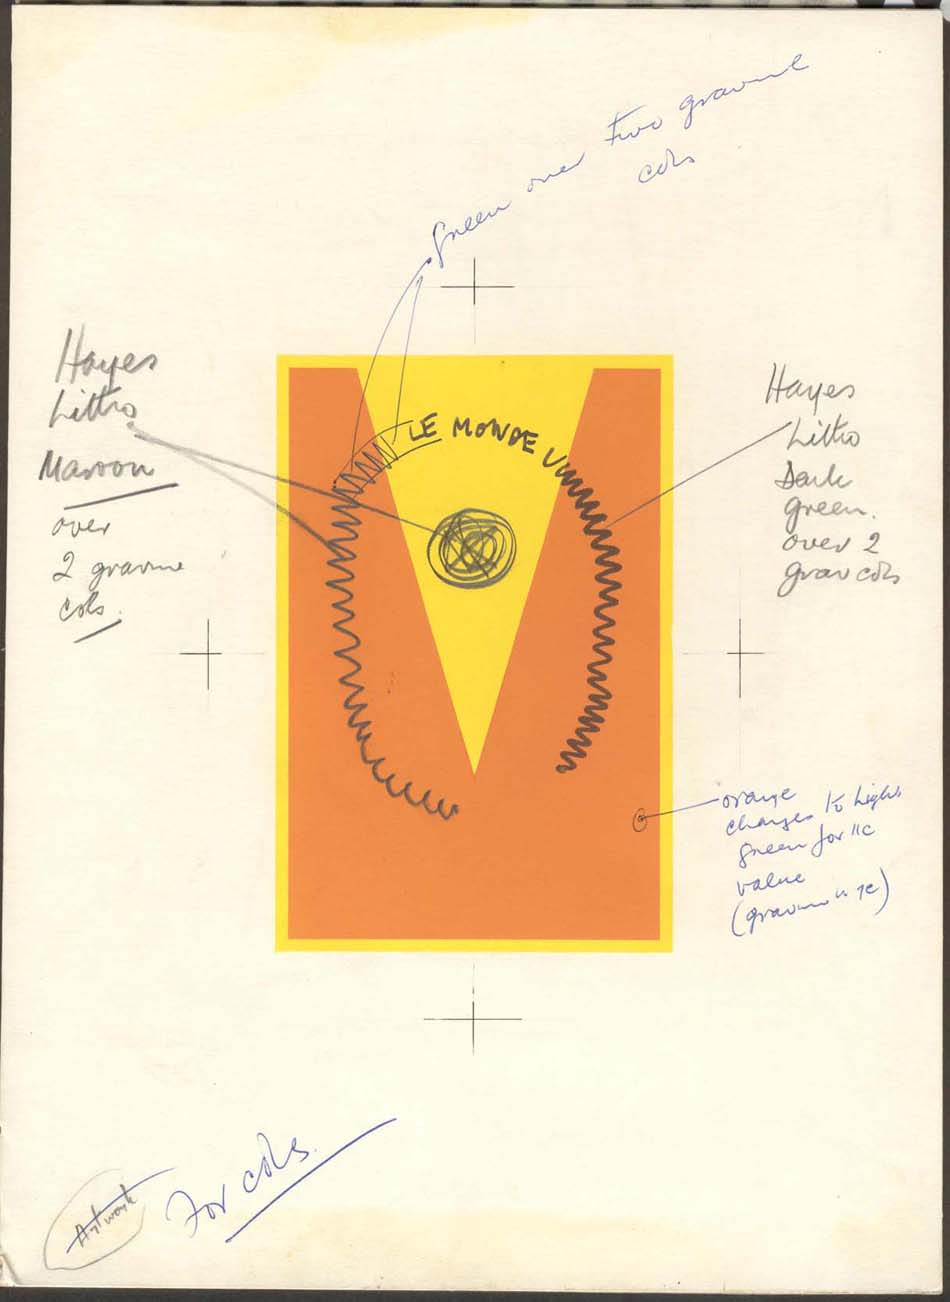 Green over two gravure
cols
Hayes
Litho
Maroon
over
2 gravure
cols.
LE MONDE
Hayes
Litho
Dark
green.
over 2
grav cols
orange
changes to light
green for 11c
value
(gravure is 7c)
For cols.
Artwork